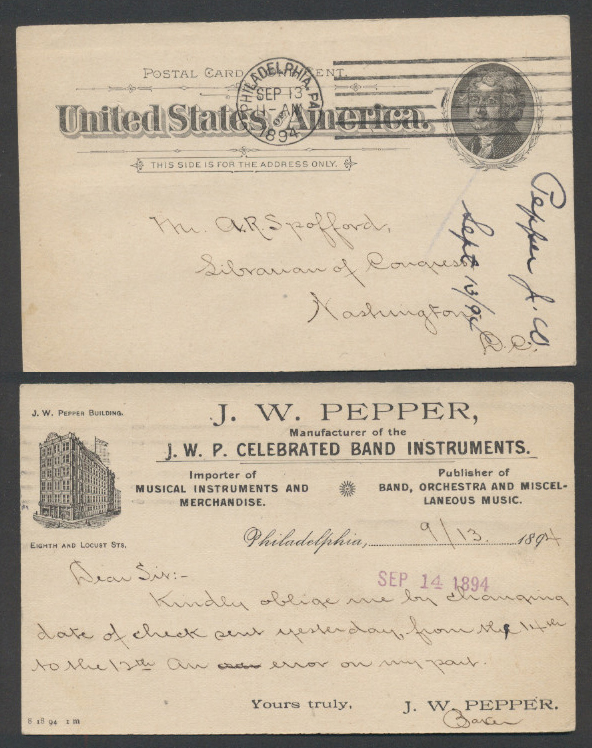 POSTAL CARD ONE CENT.
PHILADELPHIA, PA.
SEP 13
1894
United States America.
THIS SIDE IS FOR THE ADDRESS ONLY.
Mr. A.R. Spofford,
Librarian of Congress
Washington
D.C.
Pepper J. W
Sept 13/94
J. W. PEPPER BUILDING.
EIGHTH AND LOCUST STS.
J. W. PEPPER,
Manufacturer of the
J. W. P. CELEBRATED BAND INSTRUMENTS.
Importer of
MUSICAL INSTRUMENTS AND
MERCHANDISE.
Publisher of
BAND, ORCHESTRA AND MISCEL-
LANEOUS MUSIC.
Philadelphia, 9/13. 1894
SEP 14 1894
Dear Sir:-
Kindly oblige me by changing
date of check sent yesterday, from the 14th
to the 12th An error on my part.
Yours truly, J. W. PEPPER.
Baker
8 18 94 1 m